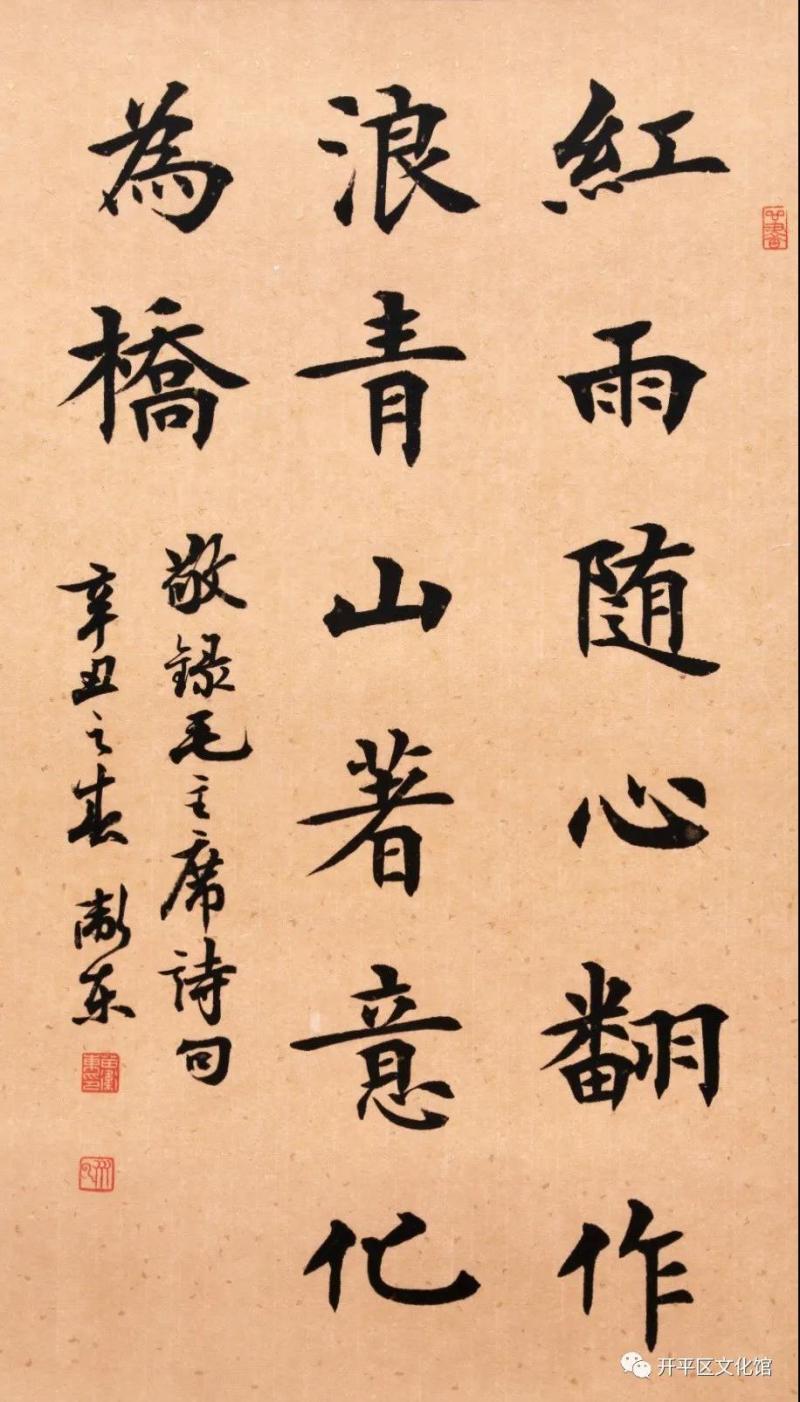 紅雨随心翻作
浪青山著意化
為橋
敬録毛主席詩句
辛丑之春 衛东
开平区文化馆